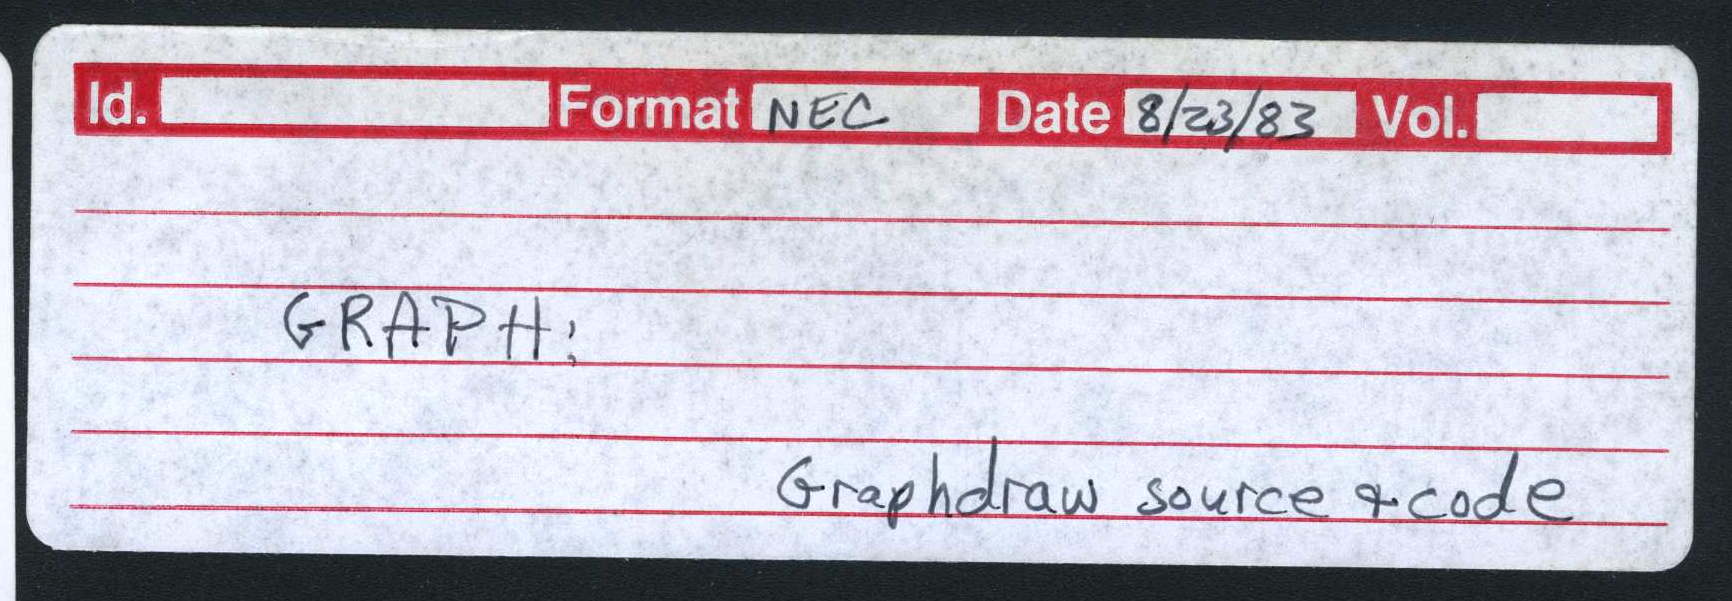 Id. Format NEC Date 8/23/83 Vol.
GRAPH:
Graphdraw source + code